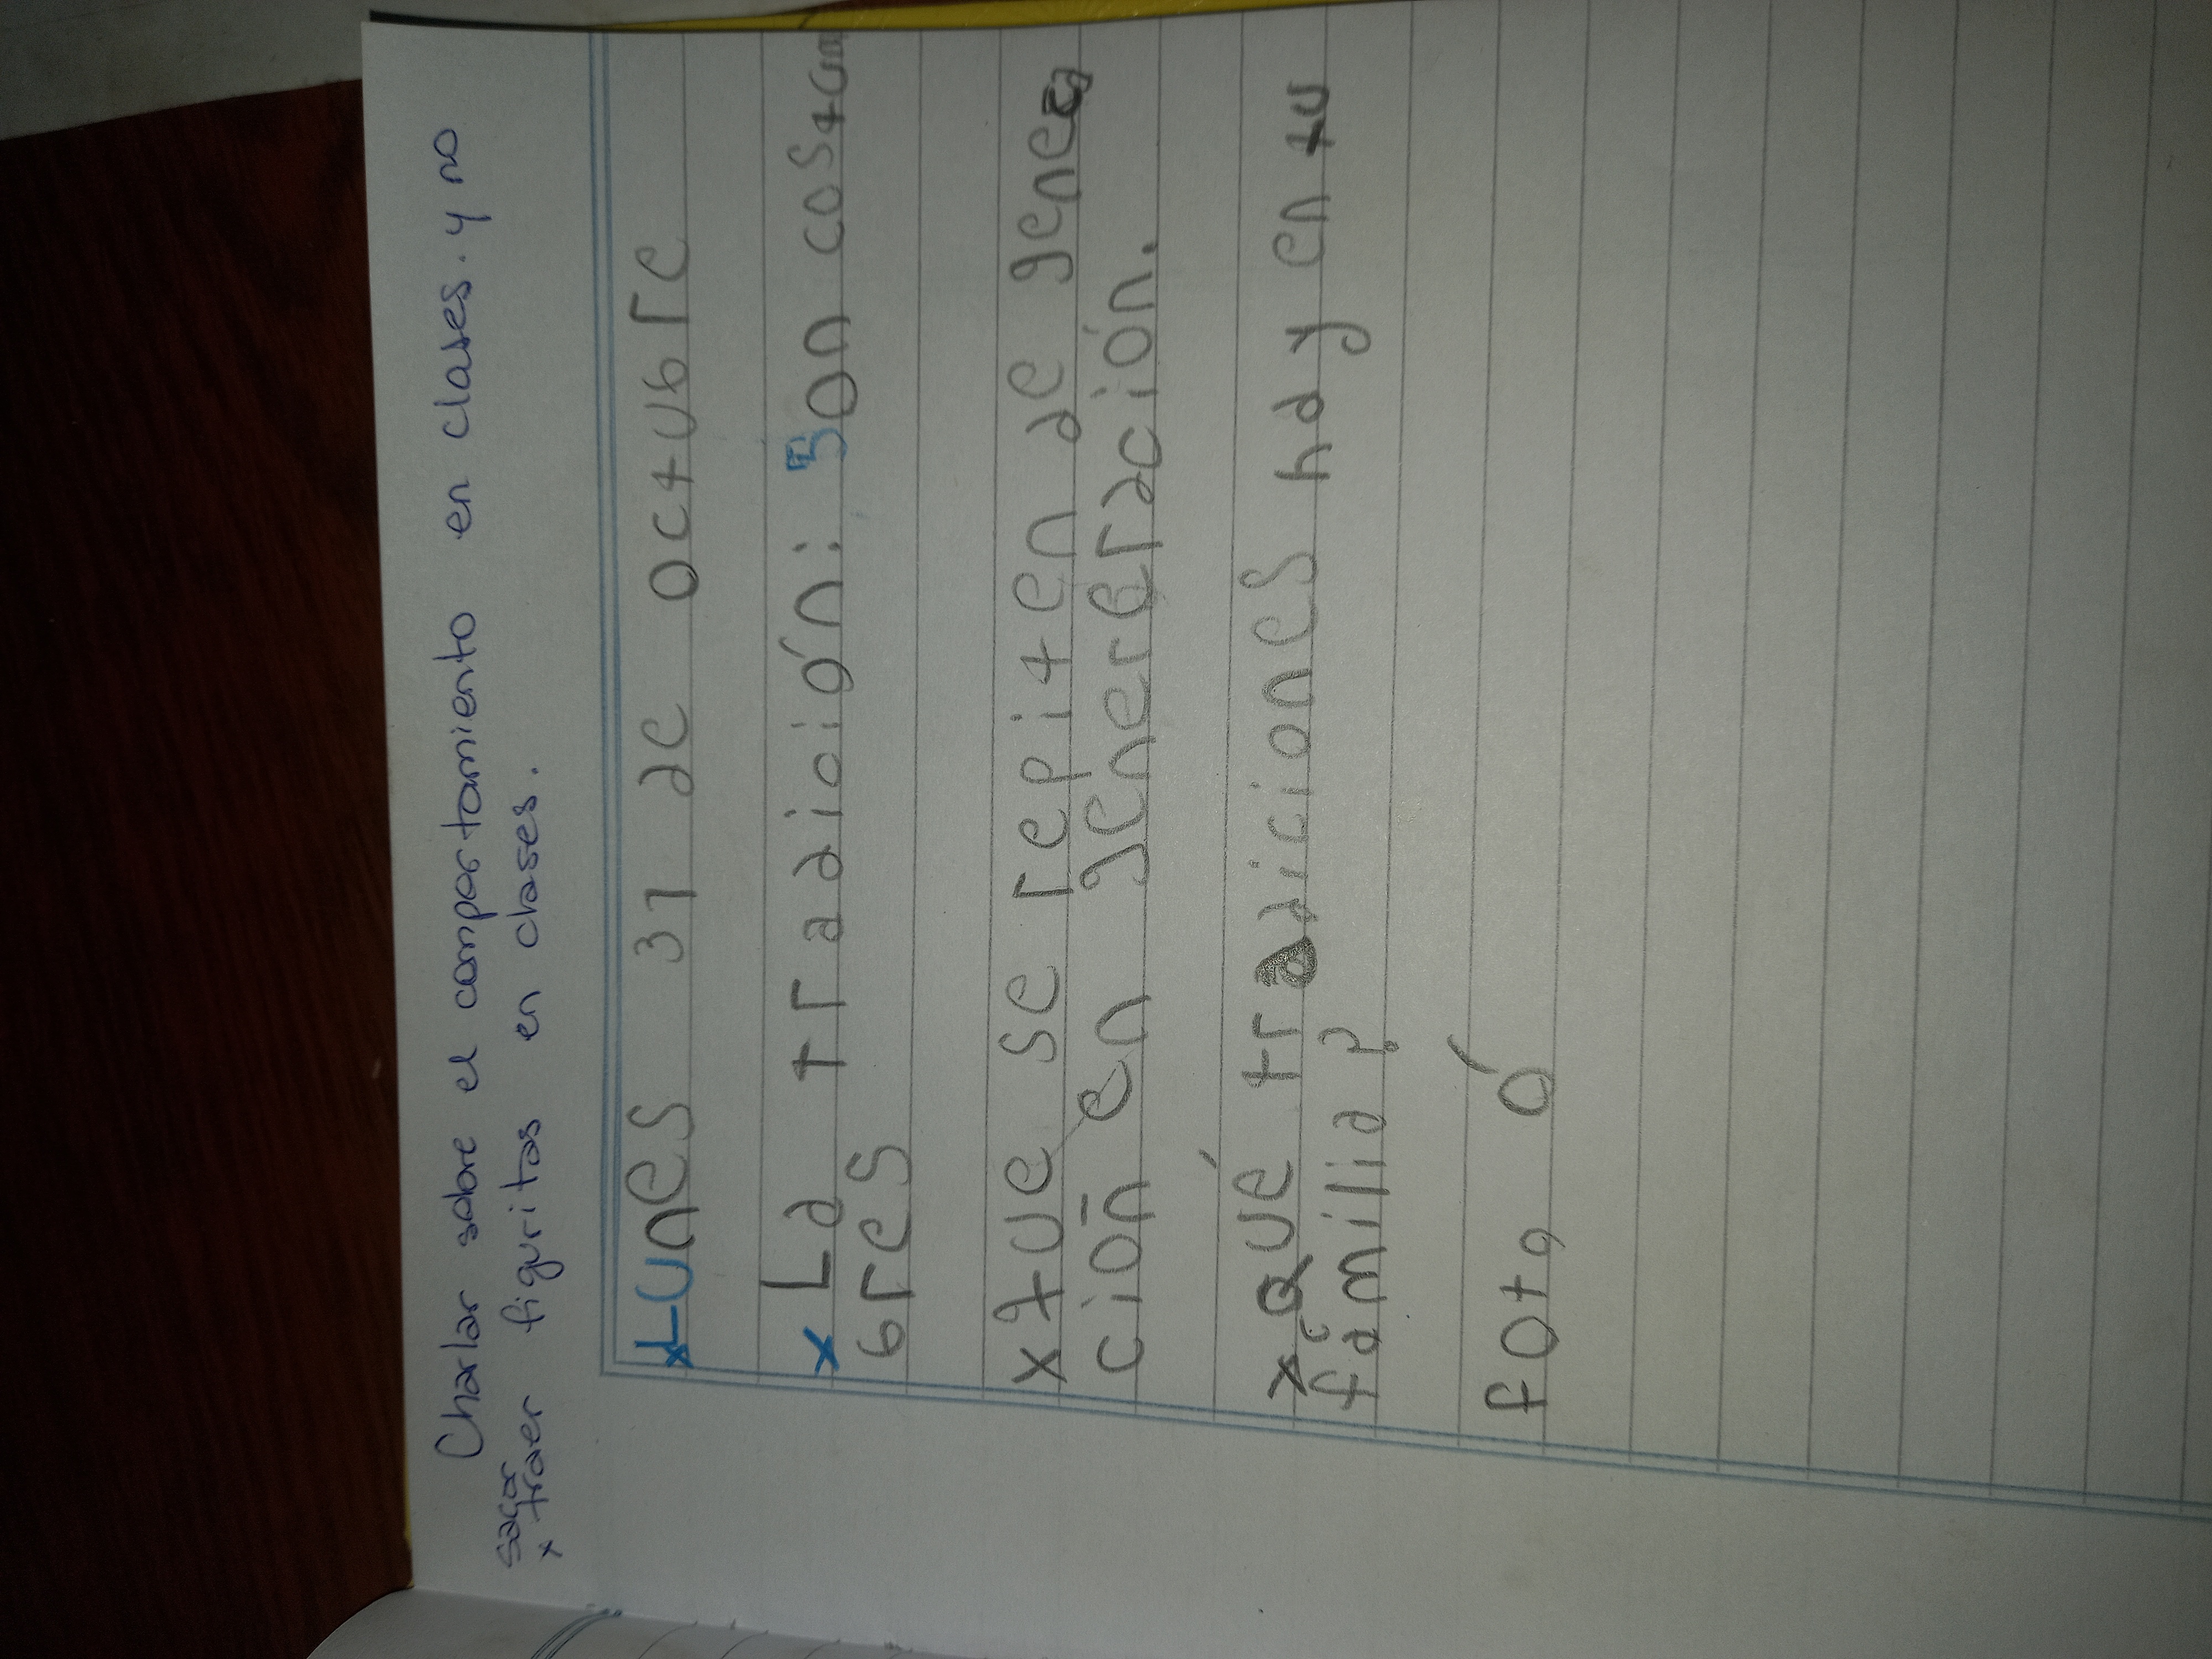 Charlar sobre el comportamiento en clases. y no
sacar
x traer figuritas en clases.
x Lunes 31 de octubre
x La tradición: Son costum
bres
x que se repiten de genea
ción en genereración.
x ¿Qué tradiciones hay en tu
familia?
foto ó